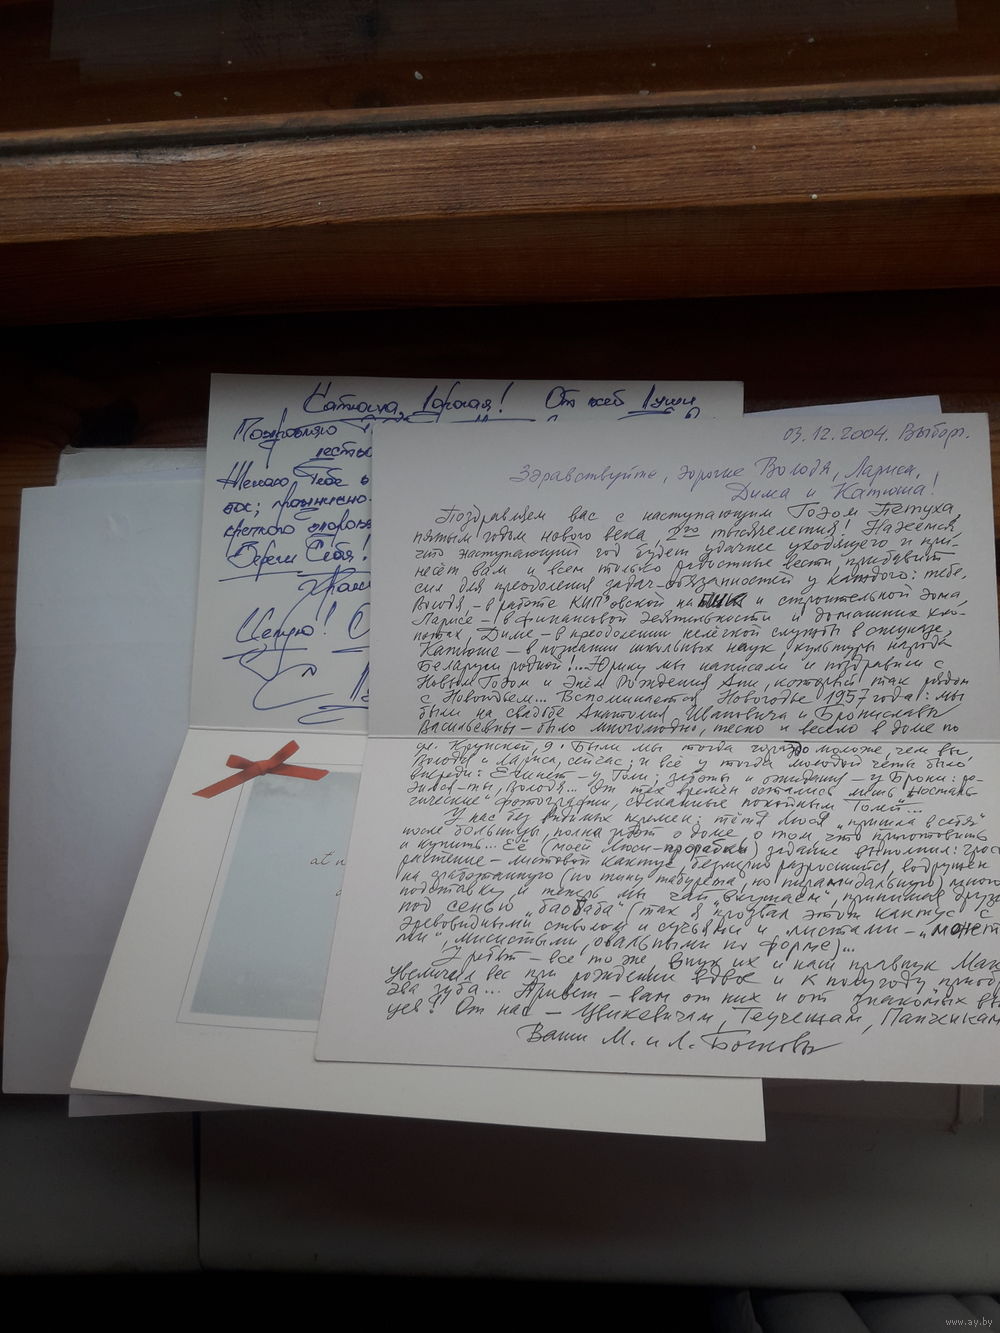 Катюша, дорогая! От всей души
Поздравляю
Желаю Тебе
крепкого здоровь
Береги Себя!
Целую!
at
03.12.2004. Выборг.
Здравствуйте, дорогие Володя, Лариса,
Дима и Катюша!
Поздравляем вас с наступающим Годом Петуха,
пятым годом нового века, 2го тысячелетия! Надеемся,
что наступающий год будет удачнее уходящего и при-
несёт вам и всем только радостные вести, прибавит
сил для преодоления задач-обязанностей у каждого: тебе,
Володя, – в работе КИПовской на и строительной дома,
Ларисе – в финансовой деятельности и домашних хло-
потах, Диме – в преодолении нелёгкой службы в
Катюше – в познании школьных наук, культуры народа
Беларуси родной!... Юрику мы написали и поздравили с
Новым Годом и Днём Рождения Ани, который так рядом
с Новогодьем... Вспоминается Новогодье 1957 года: мы
были на свадьбе Анатолия Ивановича и Брониславы
Васильевны – было многолюдно, тесно и весело в доме по
ул. Крупской, 9. Были мы тогда гораздо моложе, чем вы,
Володя и Лариса, сейчас; и всё у тогда молодой четы было
впереди: – у Толи; заботы и ожидания – у Брони: ро-
дился – ты, Володя... От тех времён остались лишь „носталь-
гические" фотографии, сделанные покойным Толей...
У нас без видимых перемен: тётя Люся „пришла в себя"
после больницы, полна забот о доме, о том что приготовить
и купить... Её (моей Люси-прорабки) задание выполнил:
растение – листовой кактус, безмерно разросшийся, водружён
на сработанную (по типу табурета, но пирамидальную)
подставку, и теперь мы чаи „вкушаем", принимая друзе
под сенью „баобаба" (так я прозвал этот кактус с
древовидными стволом и сучьями и листами – „монет
ми", мясистыми, овальными по форме)...
У ребят – все то же внук их и наш правнук Мак
увеличил вес при рождении вдвое и к полугоду приоб
два зуба... Привет – вам от них и от знакомых
цев! От нас – Цвикевичам, Теучещам, Панченкам
Ваши М. и Л.
www.ay.by